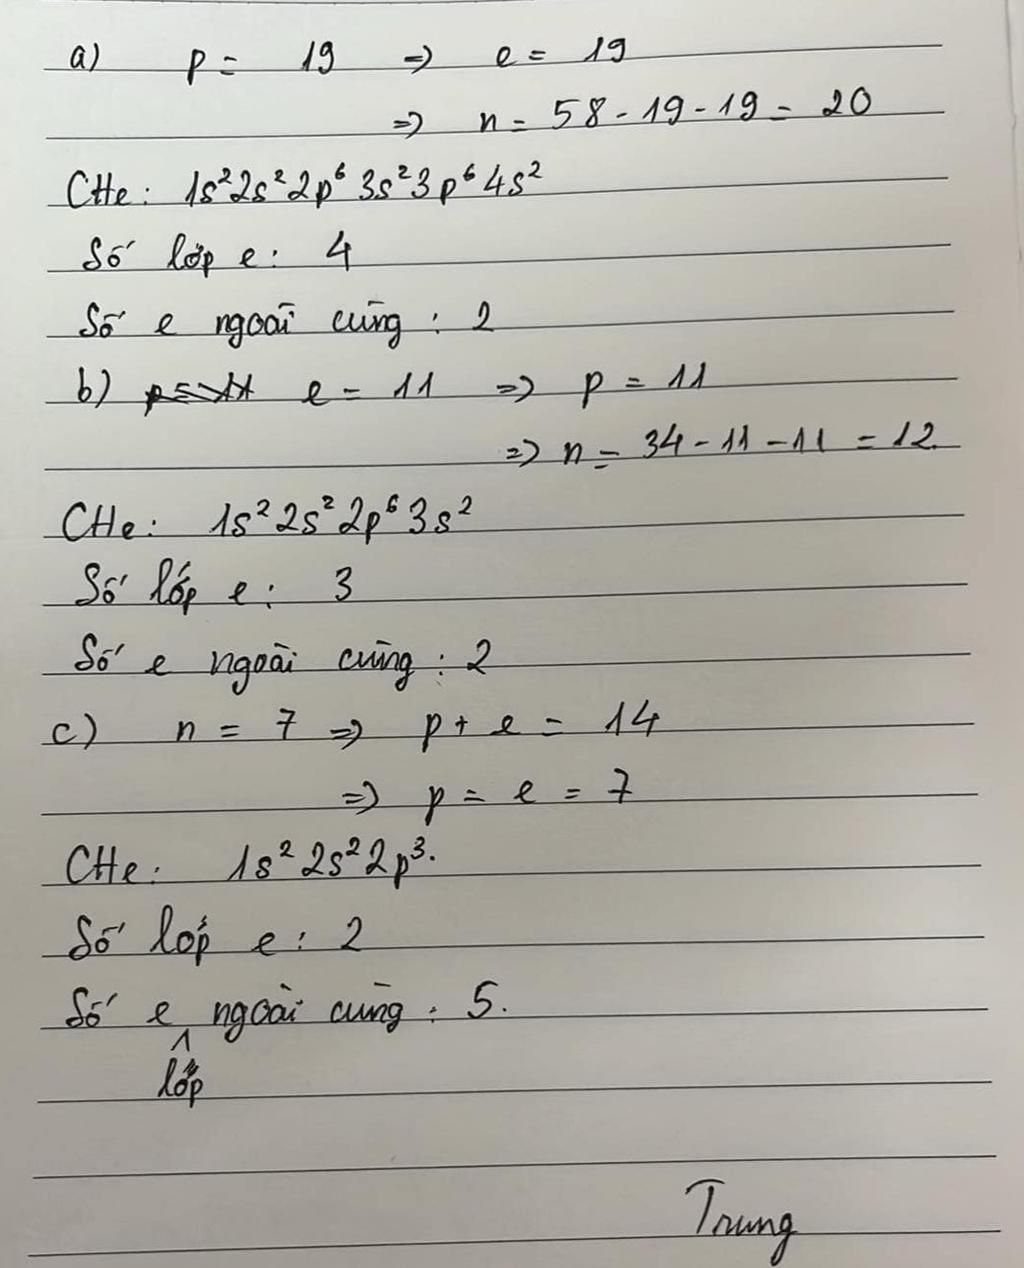 a) p = 19 => e = 19
=> n = 58 - 19 - 19 = 20
CHe: 1s² 2s² 2p⁶ 3s² 3p⁶ 4s²
Số lớp e: 4
Số e ngoài cùng: 2
b) e = 11 => p = 11
=> n = 34 - 11 - 11 = 12
CHe: 1s² 2s² 2p⁶ 3s²
Số lớp e: 3
Số e ngoài cùng: 2
c) n = 7 => p + e = 14
=> p = e = 7
CHe: 1s² 2s² 2p³.
Số lớp e: 2
Số e ngoài cùng: 5.
lớp
Trung